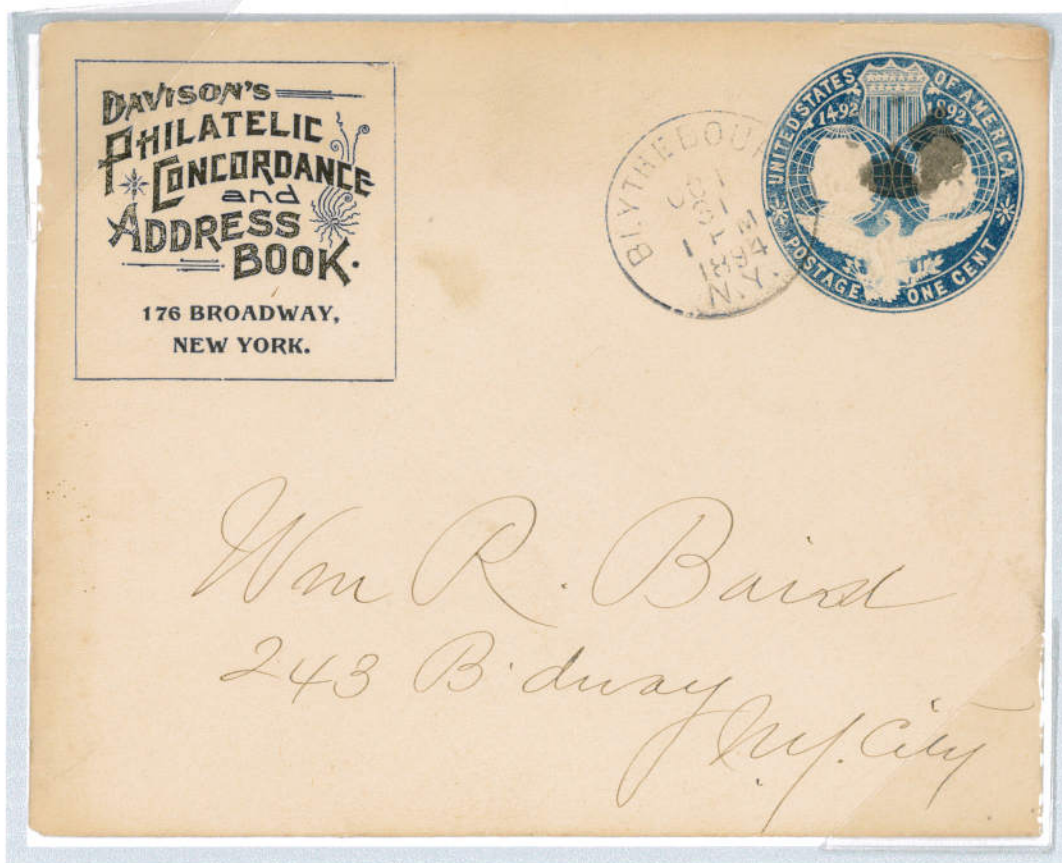 DAVISON'S
PHILATELIC
CONCORDANCE
and
ADDRESS
BOOK.
176 BROADWAY,
NEW YORK.
UNITED STATES OF AMERICA
1492 1892
POSTAGE ONE CENT
1894
N.Y.
Wm R. Baird
243 B'dway
N.Y. City